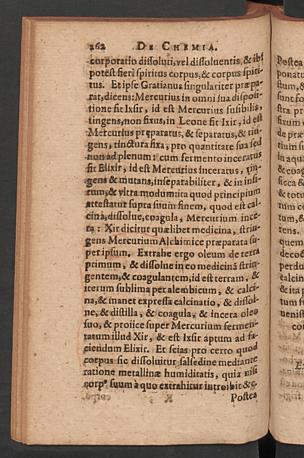 262 DE CHEMIA.
corporatio dissoluti, vel dissoluentis, & ibi
potest fieri spiritus corpus, & corpus spiri-
tus. Et ipse Gratianus singulariter præpa-
rat, dicens: Mercurius in omni sua disposi-
tione fit Ixir, id est Mercurius fusibilis,
tingens, non fixus, in Leone fit Ixir, id est
Mercurius præparatus, & separatus, & tin-
gens, tinctura fixa, pro quantitate sua sed
non ad plenum: cum fermento inceratus
fit Elixir, id est Mercurius inceratus, tin-
gens & mutans, inseparabiliter, & in infi-
tum, & vltra modum ita quod principium
attestatur supra suum finem, quod est cal-
cina, dissolue, coagula, Mercurium ince-
ra: Xir dicitur quælibet medicina, strin-
gens Mercurium Alchimicè præparata su-
per ipsum. Extrahe ergo oleum de terra
primum, & dissolue in eo medicinā strin-
gentem, & coagulantem, id est terram, &
iterum sublima per alembicum, & calci-
na, & manet expressa calcinatio, & dissol-
ue, & distilla, & coagula, & incera oleo
suo, & proiice super Mercurium fermen-
tatum illud Xir, & est Ixir aptum ad fa-
ciendum Elixir. Et scias pro certo quod
corpus sic dissoluitur salsedine mediante
ratione metallinæ humiditatis, quia nisi
corpꝰ suum à quo extrahitur introibit &c.
Postea